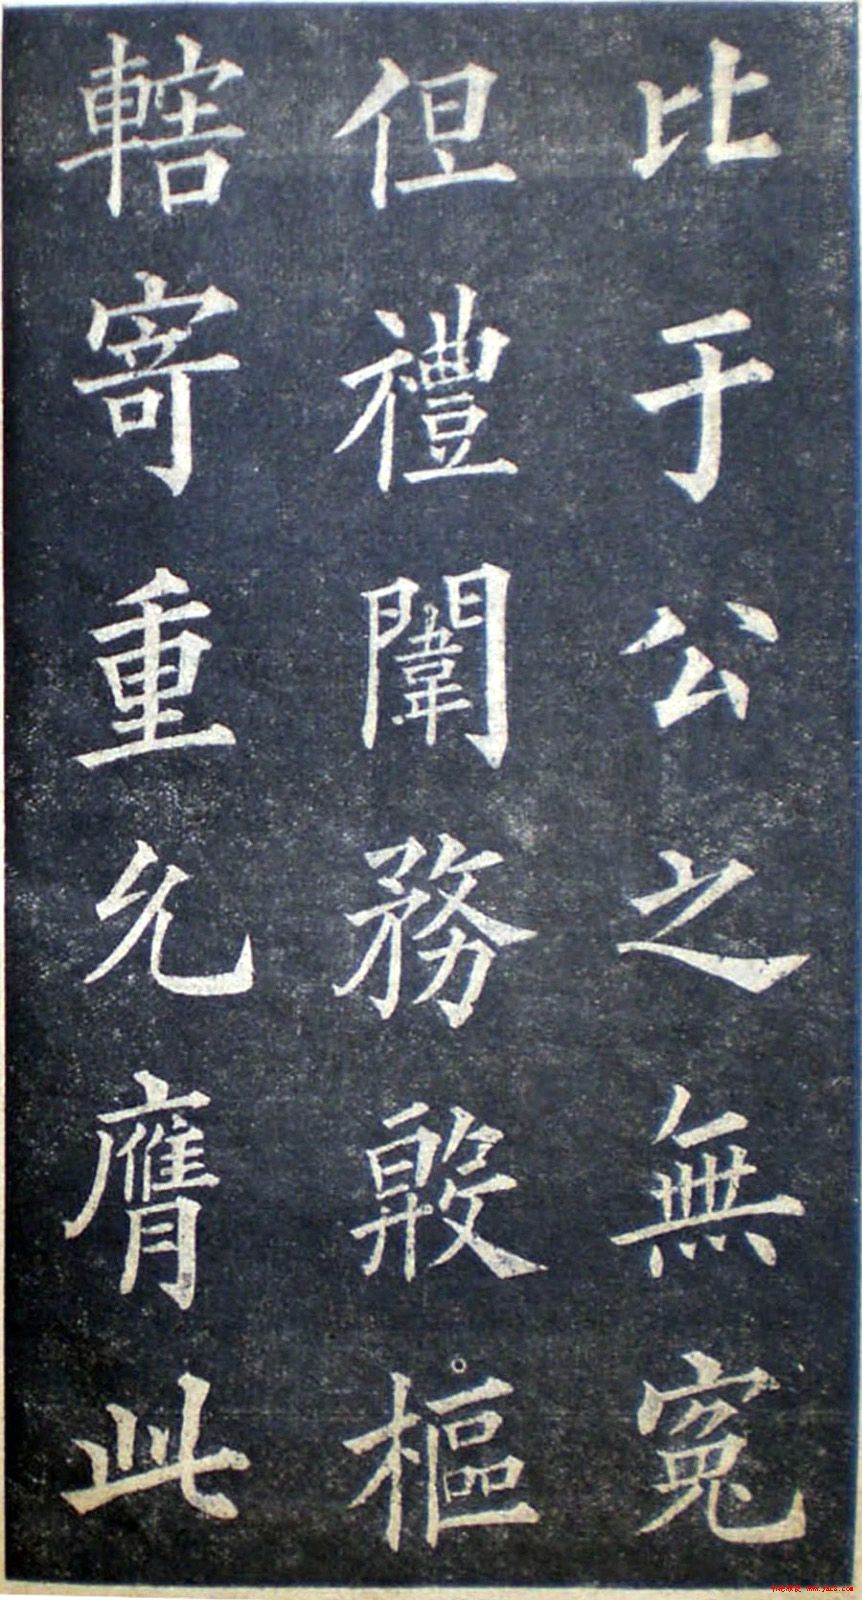 比于公之無寃
但禮闈務殷樞
轄寄重允膺此
www.yac8.com